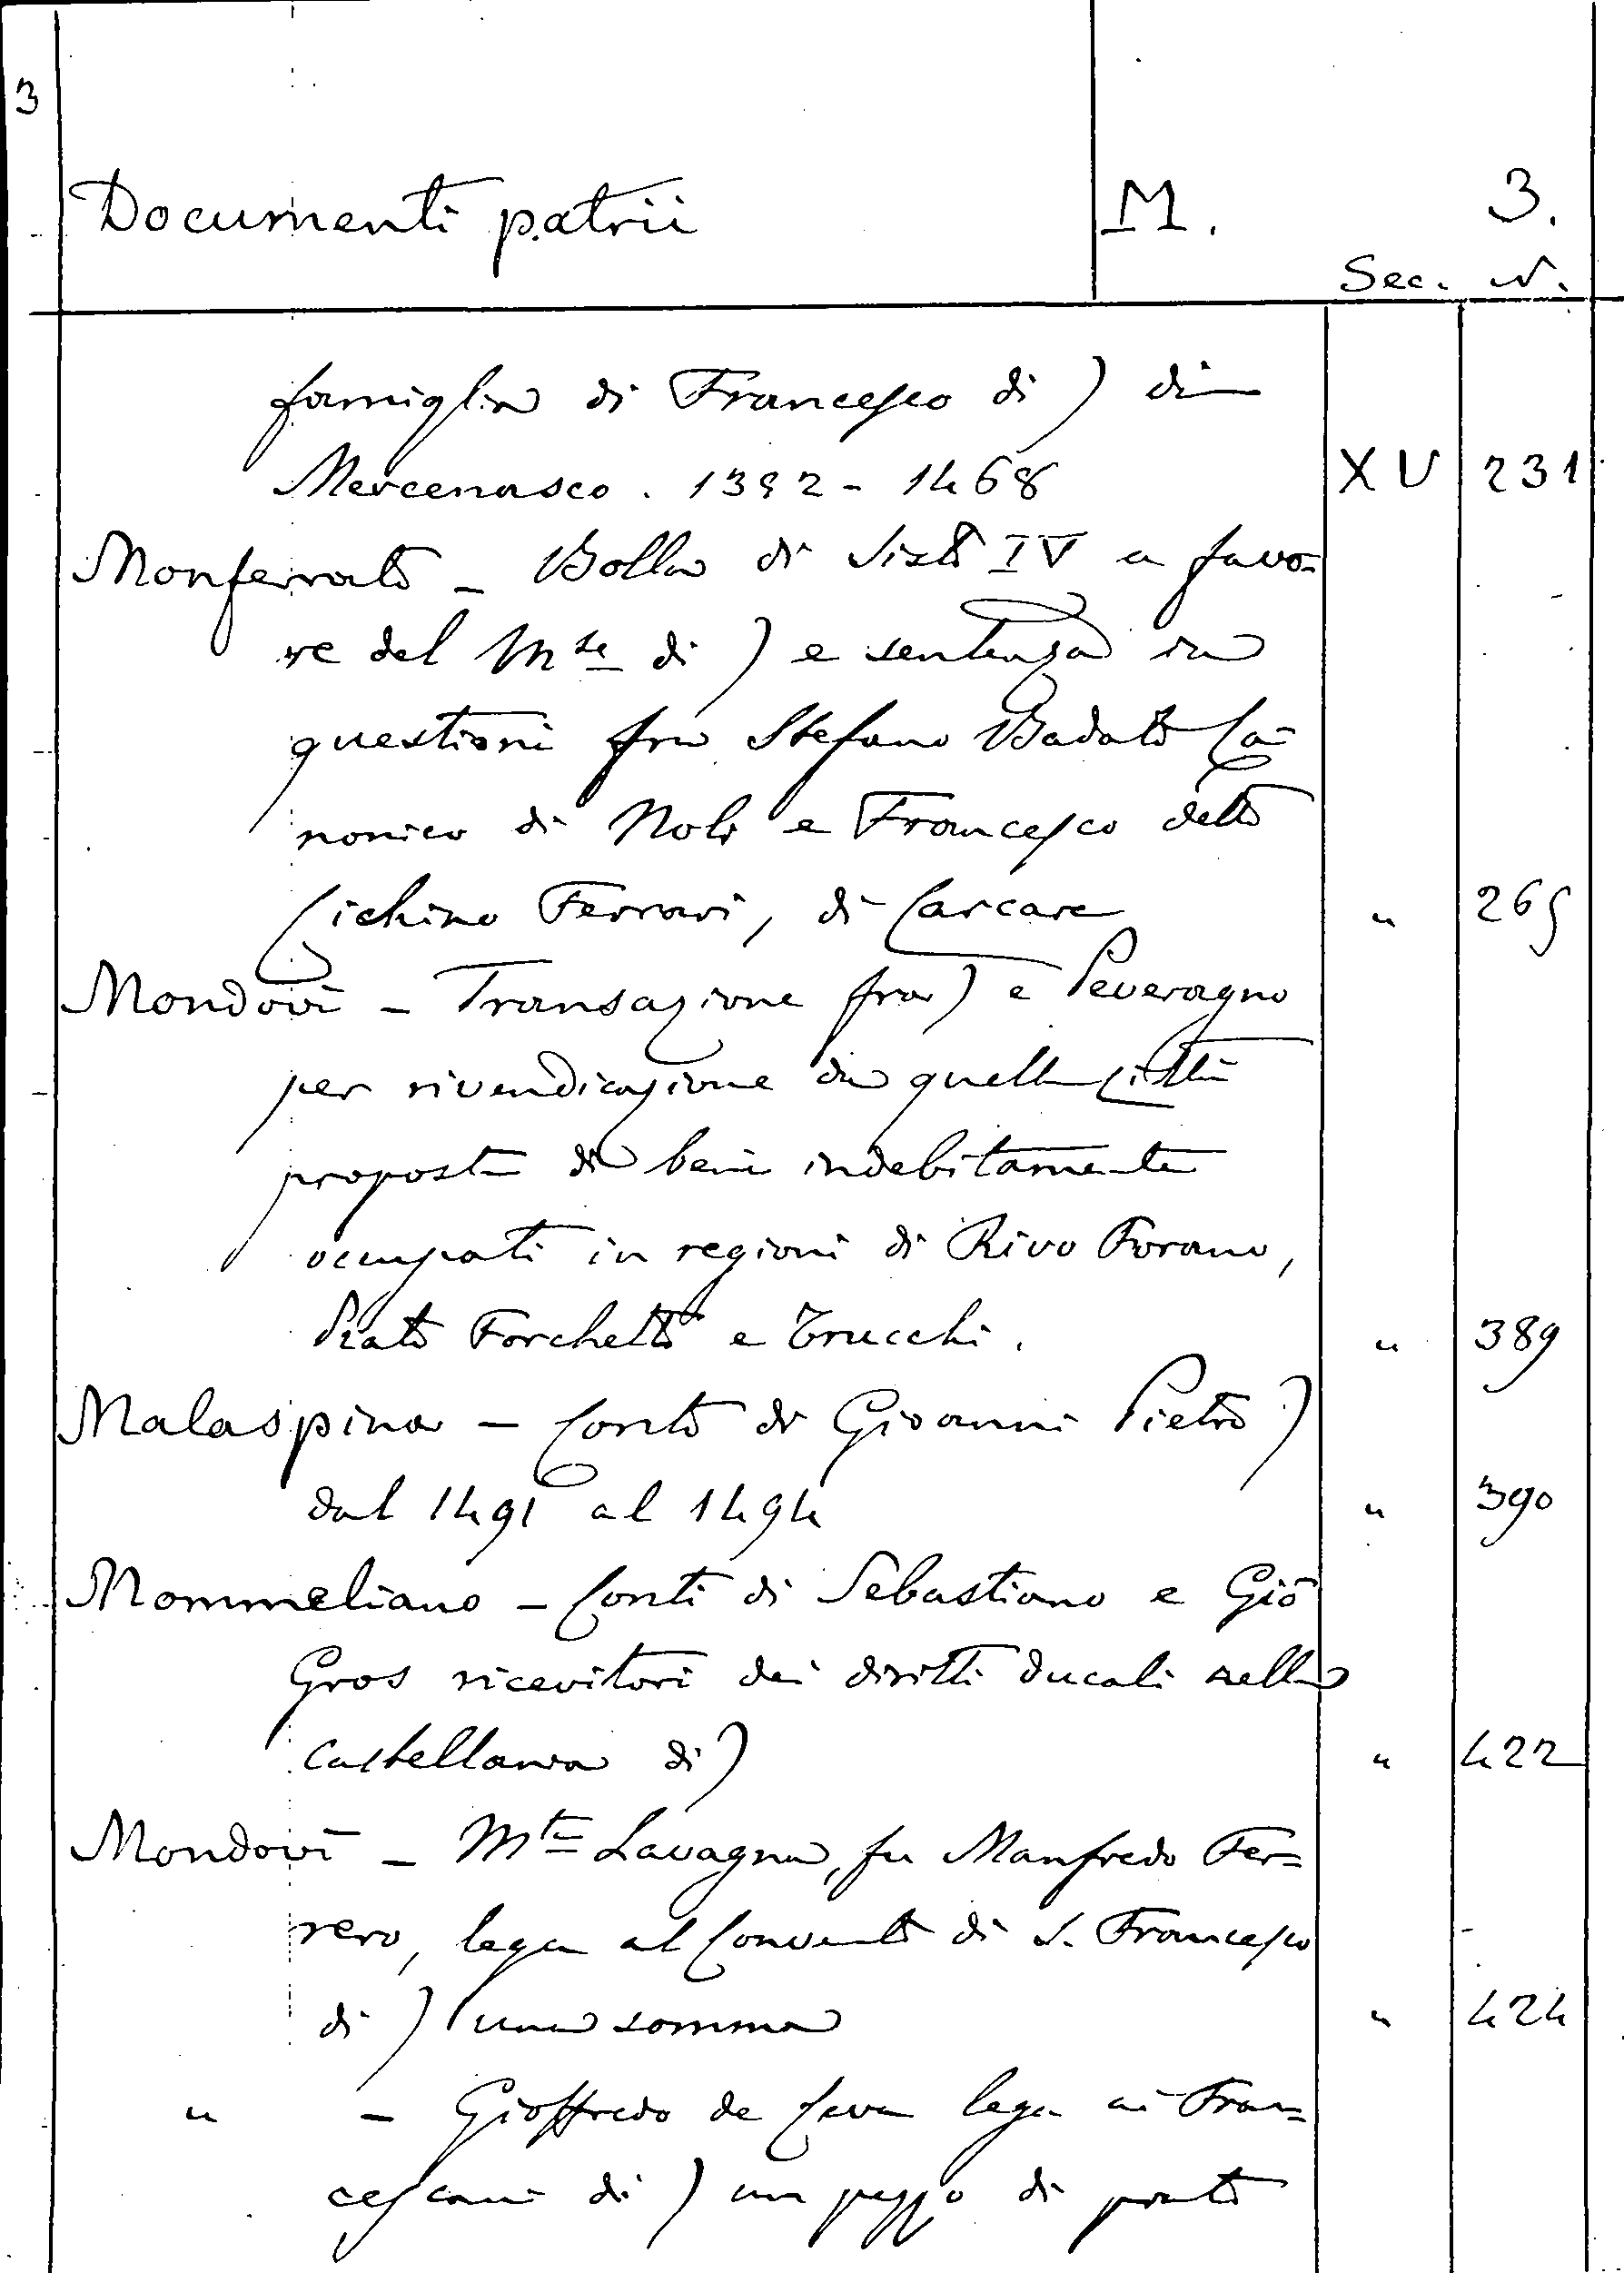 3
Documenti patrii M. 3.
Sec. N.
famiglia di Francesco di ) di
Mercenasco. 1392 - 1468 XV 231
Monferrato - Bolla di Sisto IV a favo=
re del Mse di ) e sentenza in
questioni fra Stefano Badato Ca=
nonico di Noli e Francesco detto
Cichino Ferrari, di Carcare " 265
Mondovì - Transazione fra ) e Peveragno
per rivendicazione da quella città
proposta di beni indebitamente
occupati in regioni di Rivo Forano,
Prato Forchetto e Trucchi. " 389
Malaspina - Conto di Giovanni Pietro )
dal 1491 al 1494 " 390
Mommeliano - Conti di Sebastiano e Gio
Gros ricevitori dei diritti ducali nella
castellania di ) " 422
Mondovì - Mta Lavagna, fu Manfredo Fer=
rero, lega al Convento di S. Francesco
di ) una somma " 424
" - Gioffredo de Ceva lega ai Fran=
cescani di ) un pezzo di prato